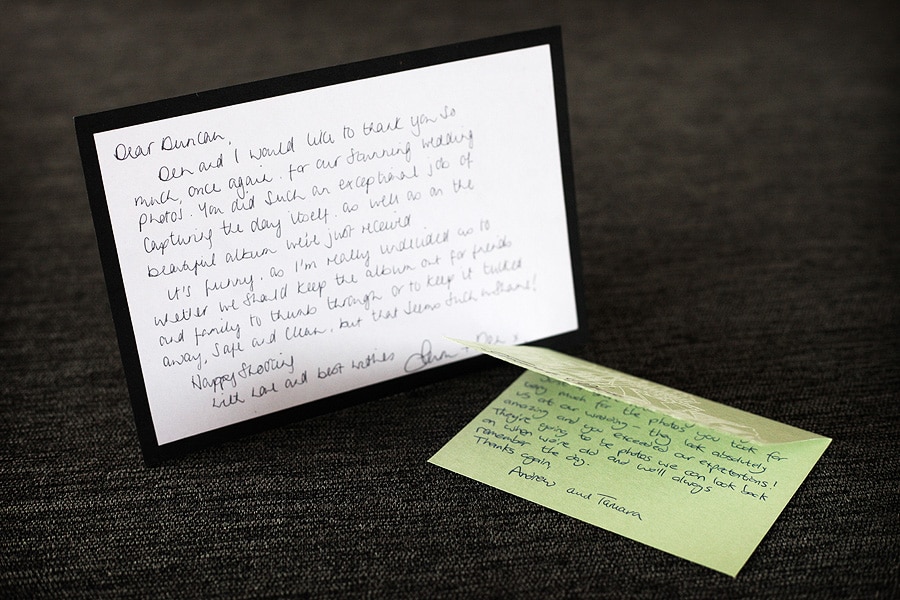 Dear Duncan,
Den and I would like to thank you so
much, once again. for our stunning wedding
photos. You did such an exceptional job of
capturing the day itself. as well as on the
beautiful album we've just received
It's funny, as I'm really undecided as to
whether we should keep the album out for friends
and family to thumb through or to keep it tucked
away, safe and clean, but that seems such a shame!
Happy Shooting
with love and best wishes
very much for the photos you took for
us at our wedding - they look absolutely
amazing and you exceeded our expectations!
They're going to be photos we can look back
on when we're old and we'll always
remember the day.
Thanks again,
Andrew and Tamara